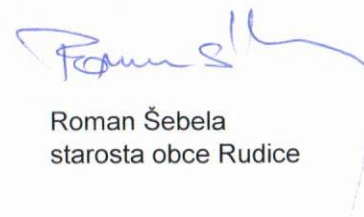 Roman Šebela
starosta obce Rudice